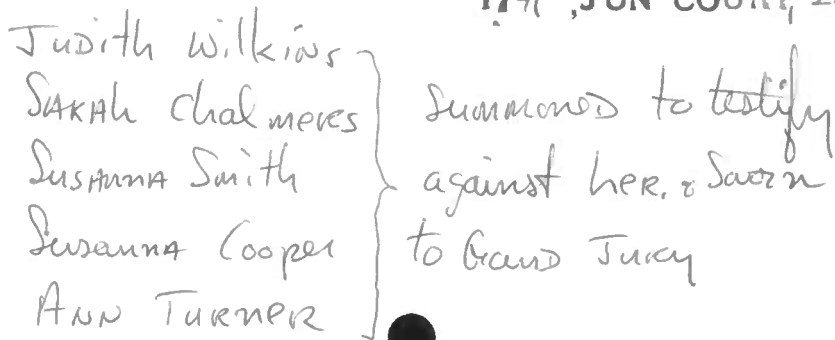 JUN COURT, 
Judith Wilkins
Sarah Chalmeres
Susanna Smith
Susanna Cooper
Ann Turner
Summoned to testify
against her. & Sworn
to Grand Jury